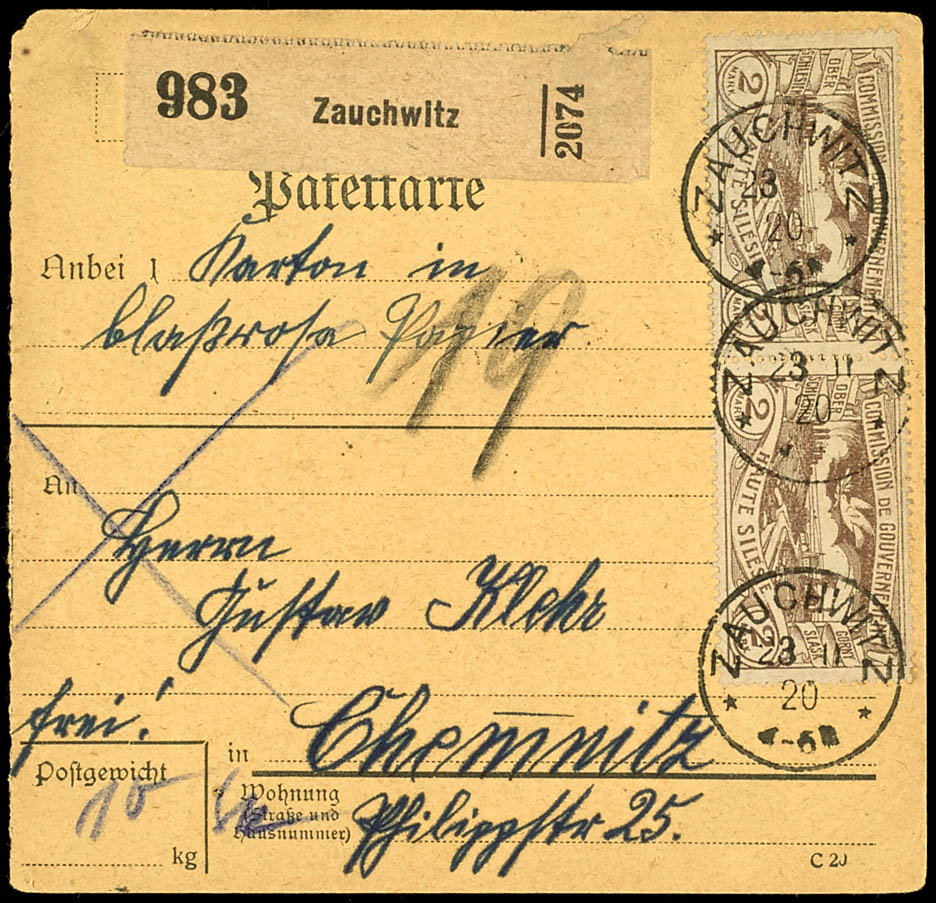 983 Zauchwitz 2074
Paketkarte
Anbei 1 Karton in
blaßrosa Papier
19
An
Herrn
Gustav Klehr
frei!
in Chemnitz
Postgewicht
10
kg
Wohnung
(Straße und
Hausnummer)
Philippstr 25.
C 20
2 MARK
COMMISSION DE GOUVERNEMENT
OBER
SCHLESIEN
HAUTE SILESIE
ZAUCHWITZ
23
20
ZAUCHWITZ
23 11
20
2 MARK
COMMISSION DE GOUVERNEMENT
OBER
SCHLESIEN
HAUTE SILESIE
GORNY
ŚLĄSK
2
ZAUCHWITZ
23 11
20